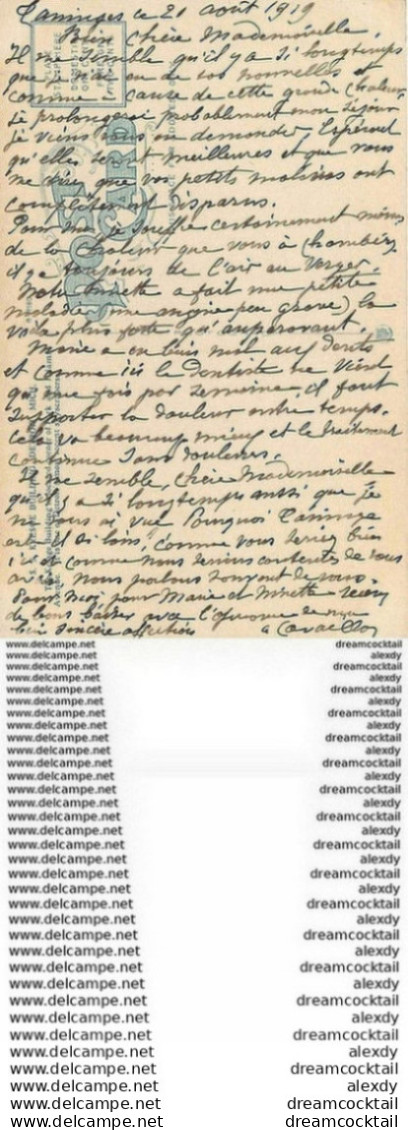 Taninges ce 21 août 1919
Bien chère Mademoiselle,
Il me semble qu'il y a si longtemps
que je n'ai eu de vos nouvelles et
comme à cause de cette grande chaleur
se prolongera probablement mon séjour
je viens vous en demander. Espérant
qu'elles seront meilleures et que vous
me direz que vos petits malaises ont
complètement disparus.
Pour moi je souffre certainement moins
de la chaleur que vous à Chambéry
il y a toujours de l'air au Verger.
Notre Minette a fait une petite
maladie (une angine peu grave) la
voilà plus forte qu'auparavant.
Marie a eu bien mal aux dents
et comme ici le dentiste ne vient
qu'une fois par semaine, il faut
supporter la douleur entre temps.
Cela va beaucoup mieux et le traitement
continue sans douleurs.
Il me semble, chère Mademoiselle
qu'il y a si longtemps aussi que je
ne vous ai vue. Pourquoi Taninges
est-il si loin, comme vous seriez bien
ici et comme nous serions contentes de vous
avoir. Nous parlons souvent de vous.
Pour moi, pour Marie et Minette
de bons baisers avec l'expression de ma
bien sincère affection
POST CARD
www.delcampe.net dreamcocktail
www.delcampe.net alexdy
www.delcampe.net dreamcocktail
www.delcampe.net alexdy
www.delcampe.net dreamcocktail
www.delcampe.net alexdy
www.delcampe.net dreamcocktail
www.delcampe.net alexdy
www.delcampe.net dreamcocktail
www.delcampe.net alexdy
www.delcampe.net dreamcocktail
www.delcampe.net alexdy
www.delcampe.net dreamcocktail
www.delcampe.net alexdy
www.delcampe.net dreamcocktail
www.delcampe.net alexdy
www.delcampe.net dreamcocktail
www.delcampe.net alexdy
www.delcampe.net dreamcocktail
www.delcampe.net alexdy
www.delcampe.net dreamcocktail
www.delcampe.net alexdy
www.delcampe.net dreamcocktail
www.delcampe.net alexdy
www.delcampe.net dreamcocktail
www.delcampe.net alexdy
www.delcampe.net dreamcocktail
www.delcampe.net alexdy
www.delcampe.net dreamcocktail
www.delcampe.net alexdy
www.delcampe.net dreamcocktail
www.delcampe.net dreamcocktail